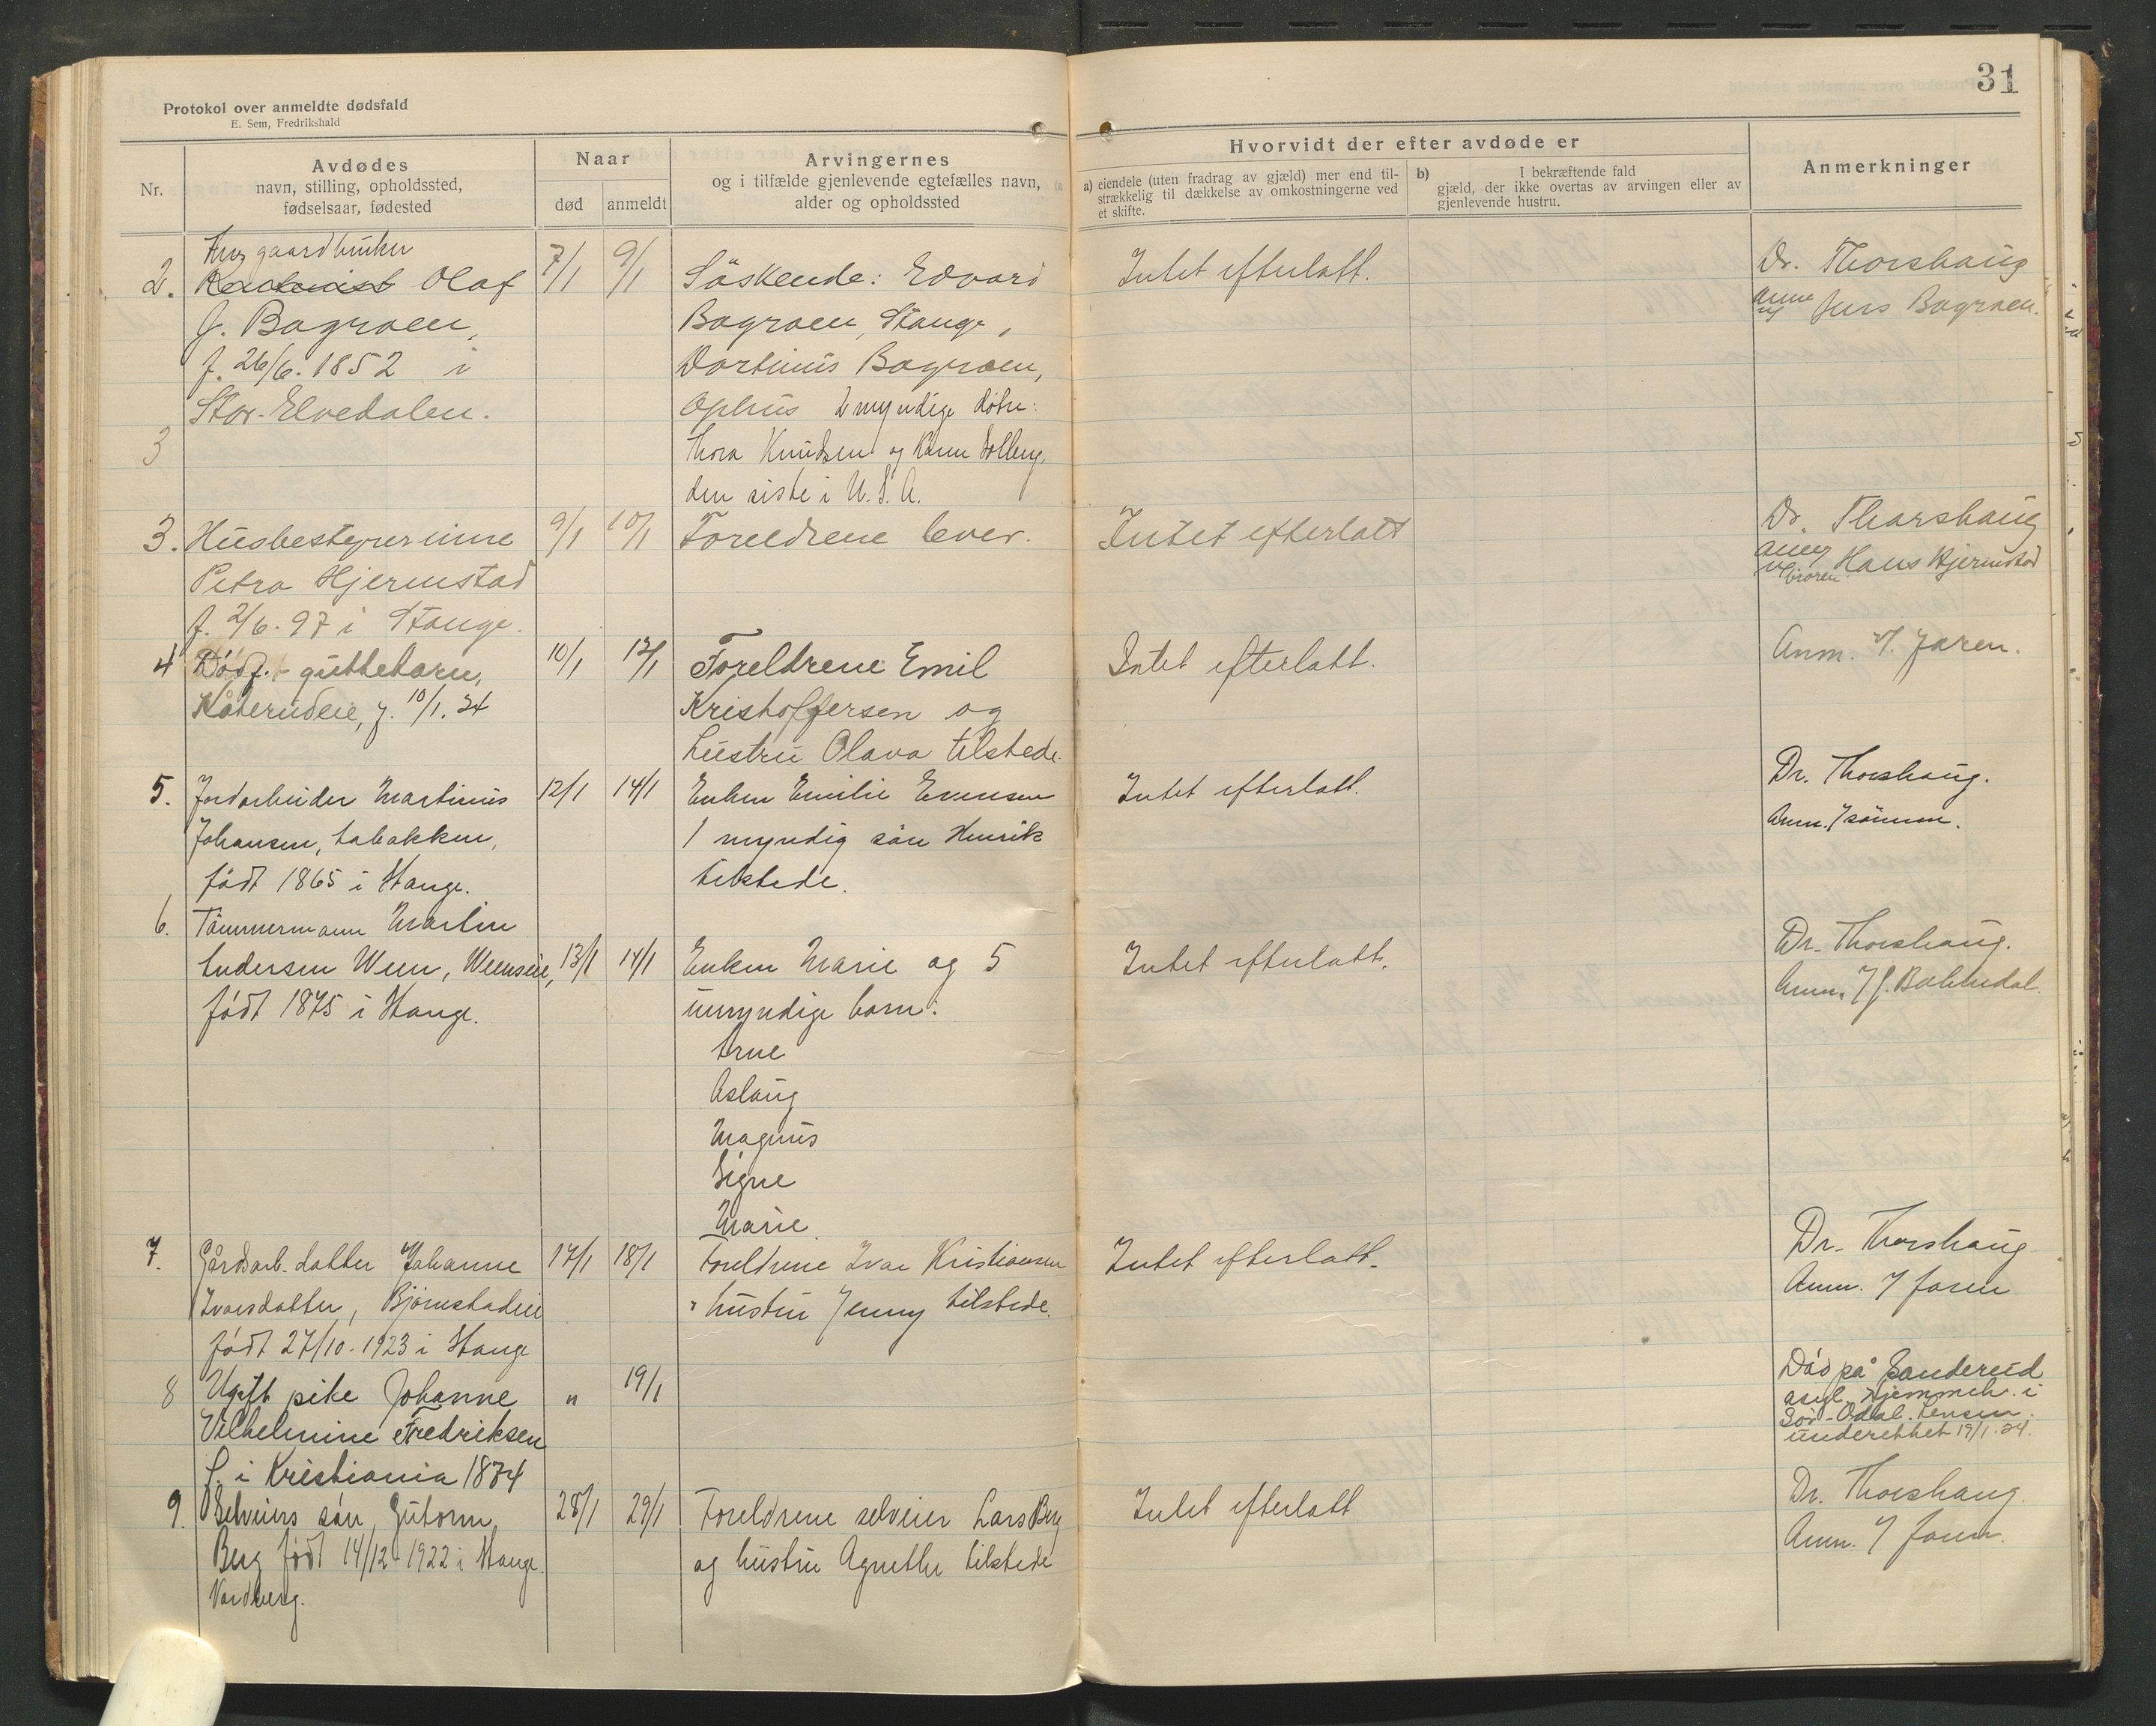 Protokol over anmeldte dødsfald
E. Sem, Fredrikshald
31
Nr.
Avdødes
navn, stilling, opholdssted,
fødselsaar, fødested
Naar
død
anmeldt
Arvingernes
og i tilfælde gjenlevende egtefælles navn,
alder og opholdssted
Hvorvidt der efter avdøde er
a) eiendele (uten fradrag av gjæld) mer end til-
strækkelig til dækkelse av omkostningerne ved
et skifte.
b) I bekræftende fald
gjæld, der ikke overtas av arvingen eller av
gjenlevende hustru.
Anmerkninger
gaardbruker
2. Olaf
J. Bagroen,
f. 26/6. 1852 i
Stor-Elvedalen.
7/1
9/1
Söskende: Edvard
Bagroen, Stange,
Martinus Bagroen,
Ophus 2 myndige døtre:
Thora Knudsen og Karen Solberg,
den siste i U.S.A.
Intet efterlatt.
Dr. Thorshaug
Jens Bagroen.
3
3. Husbestyrerinne
Petra Hjermstad
f. 2/6. 97 i Stange.
9/1
10/1
Foreldrene lever.
Intet efterlatt
Dr. Thorshaug
Anm. v/ broren Hans Hjermstad
4 Dödf. guttebarn,
Kåterudeie, f. 10/1. 24
10/1
12/1
Foreldrene Emil
Kristoffersen og
hustru Olava tilstede.
Intet efterlatt.
Anm. v/ faren.
5. Jordarbeider Martinus
Johansen, Labakken,
født 1865 i Stange.
12/1
14/1
Enken Emilie Evensen
1 myndig sön Henrik
tilstede.
Intet efterlatt.
Dr. Thorshaug.
Anm. / sönnen.
6. Tömmermann Martin
Andersen Ween, Weenseie,
født 1875 i Stange.
13/1
14/1
Enken Marie og 5
umyndige barn:
Arne
Aslaug
Magnus
Signe
Marie.
Intet efterlatt.
Dr. Thorshaug.
Anm. / J.
7. Gårdsarb. datter Johanne
Ivarsdatter, Bjørnstadeie
født 27/10-1923 i Stange
17/1
18/1
Foreldrene Ivar Kristiansen
" hustru Jenny tilstede.
Intet efterlatt.
Dr. Thorshaug
Anm. / faren
8 Ugift pike Johanne
Vilhelmine Fredriksen
f. i Kristiania 1874
"
19/1
Död på Sandereid
asyl, hjemmeh. i
Sör-Odal. Lensm.
underettet 19/1. 24.
9. Selveiers sön Gutorm
Berg født 14/12-1922 i Stange.
Nordberg.
28/1
29/1
Foreldrene selveier Lars Berg
og hustru Agnethe tilstede
Intet efterlatt
Dr. Thorshaug.
Anm. / faren.